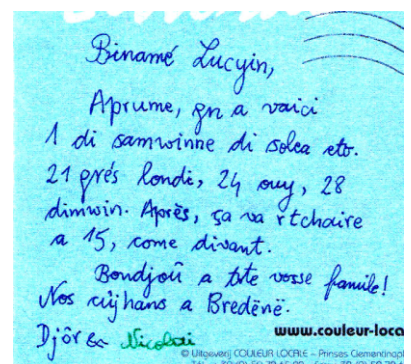 Binamé Lucyin,
Aprume, gn a vaici
1 di samwinne di solea eto.
21 grés londi, 24 ouy, 28
dimwin. Après, ça va rtchaire
a 15, come divant.
Bondjoû a tote vosse famile!
Nos cûjhans a Bredënë.
Djôr &
Nicolai
www.couleur-loca
© Uitgeverij COULEUR LOCALE – Prinses Clementinapl